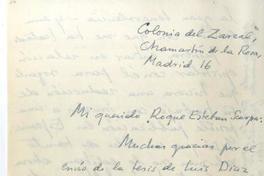 Colonia del Zarzal,
Chamartín de la Rosa,
Madrid 16
Mi querido Roque Esteban Scarpa:
Muchas gracias por el
envío de la tesis de Luis Díaz